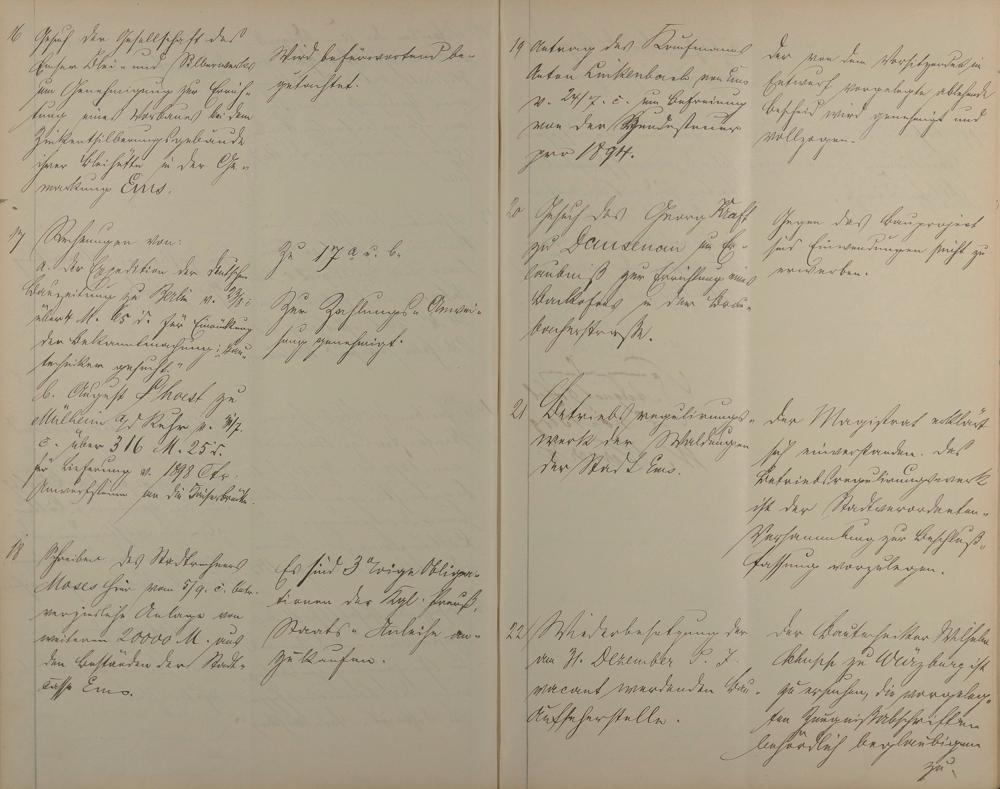 16 Gesuch der Gesellschaft des
Emser Blei- und Silberwerks
um Genehmigung zur Errich-
tung eines Vorbaues bei dem
Zinkentsilberungsgebäude
ihrer Bleihütte in der Ge-
markung Ems.
Wird befürwortend be-
gutachtet.
17 Rechnungen von:
a. der Expedition der deutschen
Bauzeitung zu Berlin v.
über 4 M. 65 d. für Einrückung
der Bekanntmachung: „Bau-
techniker gesucht."
b. August Thoest zu
Mülheim a/d Ruhr v. 31/7.
c. über 316 M. 25 d.
für Lieferung v. 1898 Ctr.
an die
Zu 17 a u. b.
Zur Zahlungs-Anwei-
sung genehmigt.
18 Schreiben des Stadtrechners
Moses hier vom 5/9. c. betr.
verzinsliche Anlage von
weiteren 20000 M. aus
den Beständen der Stadt-
casse Ems.
Es sind 3 %ige Obliga-
tionen der Kgl. Preuß.
Staats-Anleihe an-
zukaufen.
19 Antrag des Kaufmanns
Anton Linkenbach von Ems
v. 24/7. c. um Befreiung
von der Hundesteuer
pro 1894.
Der von dem Vorsitzenden im
Entwurf vorgelegte ablehnende
Bescheid wird genehmigt und
vollzogen.
20 Gesuch des Georg Kraft
zu Dausenau um Er-
laubniß zur Errichtung eines
Backofens in der Brau-
bacherstraße.
Gegen das Bauproject
sind Einwendungen nicht zu
erwerben.
21 Betriebsregulirungs-
werk der Waldungen
der Stadt Ems.
Der Magistrat erklärt
sich einverstanden. Das
Betriebsregulirungswerk
ist der Stadtverordneten-
Versammlung zur Beschluß-
fassung vorzulegen.
22 Wiederbesetzung der
am 31. Dezember d. J.
vacant werdenden Bau-
Aufseherstelle.
Der Bautechniker Wilhelm
zu Würzburg ist
zu ersuchen, die vorgeleg-
ten Zeugnißabschriften
behördlich beglaubigen
zu